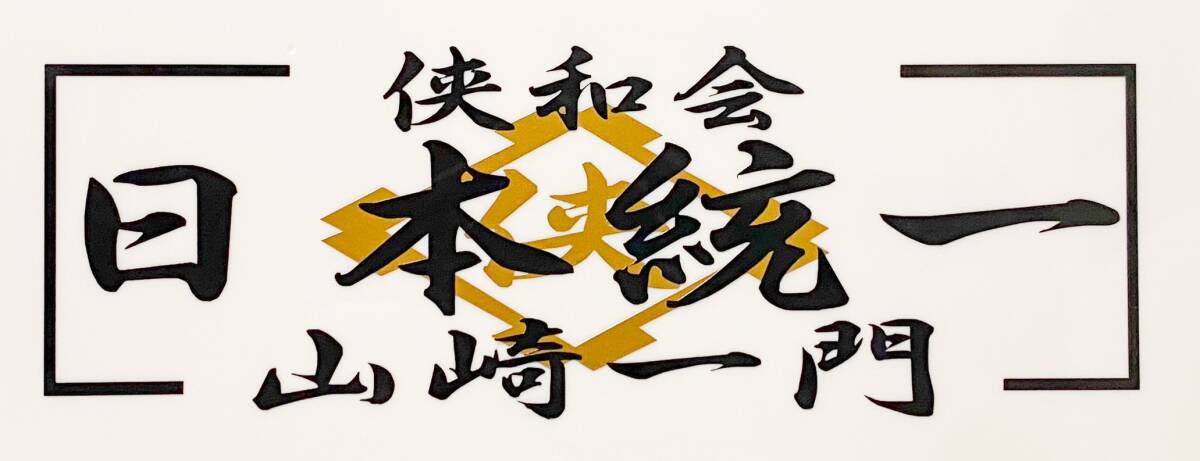 侠和会
侠
日本統一
山崎一門